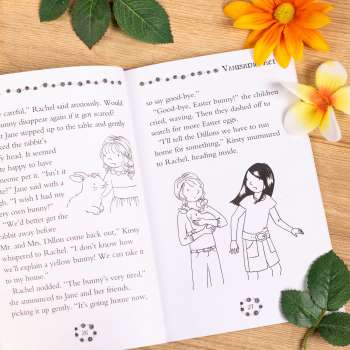 careful," Rachel said anxiously. Would
bunny disappear again if it got scared?
Jane stepped up to the table and gently
the rabbit's
head. It seemed
to happy to have
someone pet it. "Isn't it
Jane said with a
"I wish I had my
own bunny!"
"We'd better get the
rabbit away before
Mr. and Mrs. Dillon come back out," Kirsty
whispered to Rachel. "I don't know how
we'll explain a yellow bunny! We can take it
to my house."
Rachel nodded. "The bunny's very tired,"
she announced to Jane and her friends,
picking it up gently. "It's going home now,
so say good-bye."
"Good-bye, Easter bunny!" the children
cried, waving. Then they dashed off to
search for more Easter eggs.
"I'll tell the Dillons we have to run
home for something," Kirsty murmured
to Rachel, heading inside.